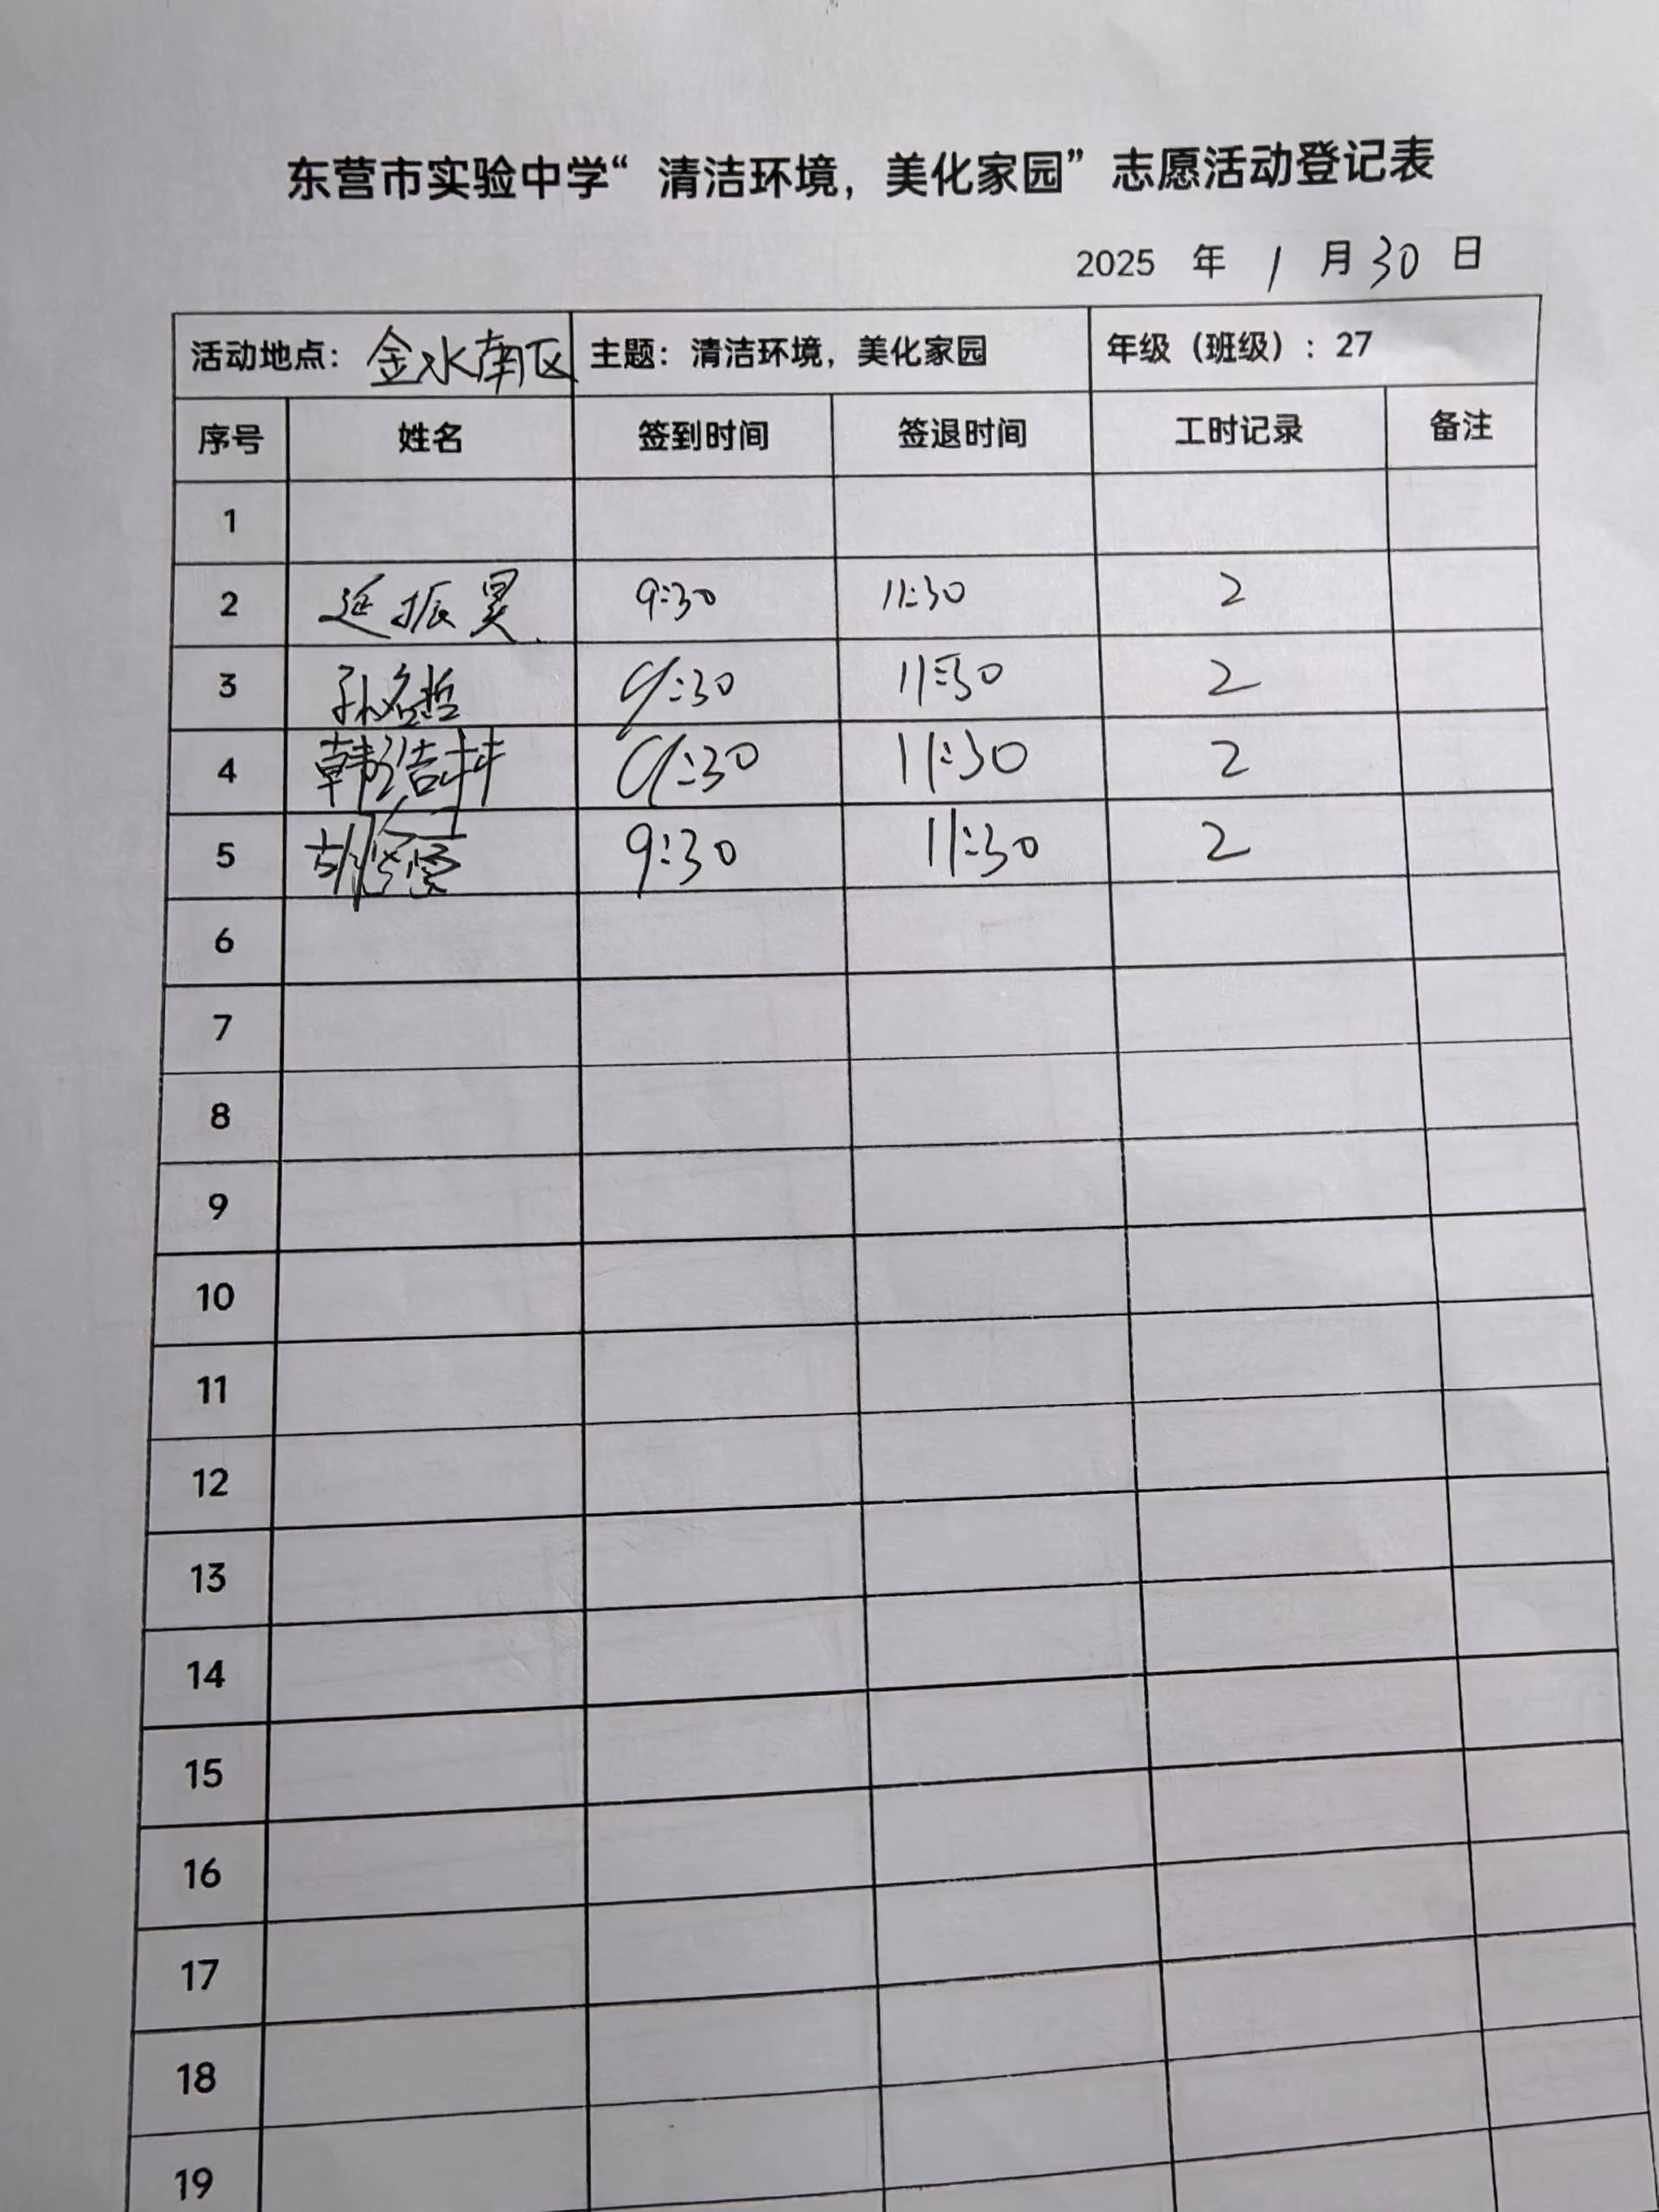 东营市实验中学“清洁环境，美化家园”志愿活动登记表
2025 年 1 月 30 日
活动地点：金水南区 主题：清洁环境，美化家园 年级（班级）：27
序号 姓名 签到时间 签退时间 工时记录 备注
1
2 延振昊 9:30 11:30 2
3 孙铭哲 9:30 11:30 2
4 韩浩 9:30 11:30 2
5 胡 9:30 11:30 2
6
7
8
9
10
11
12
13
14
15
16
17
18
19